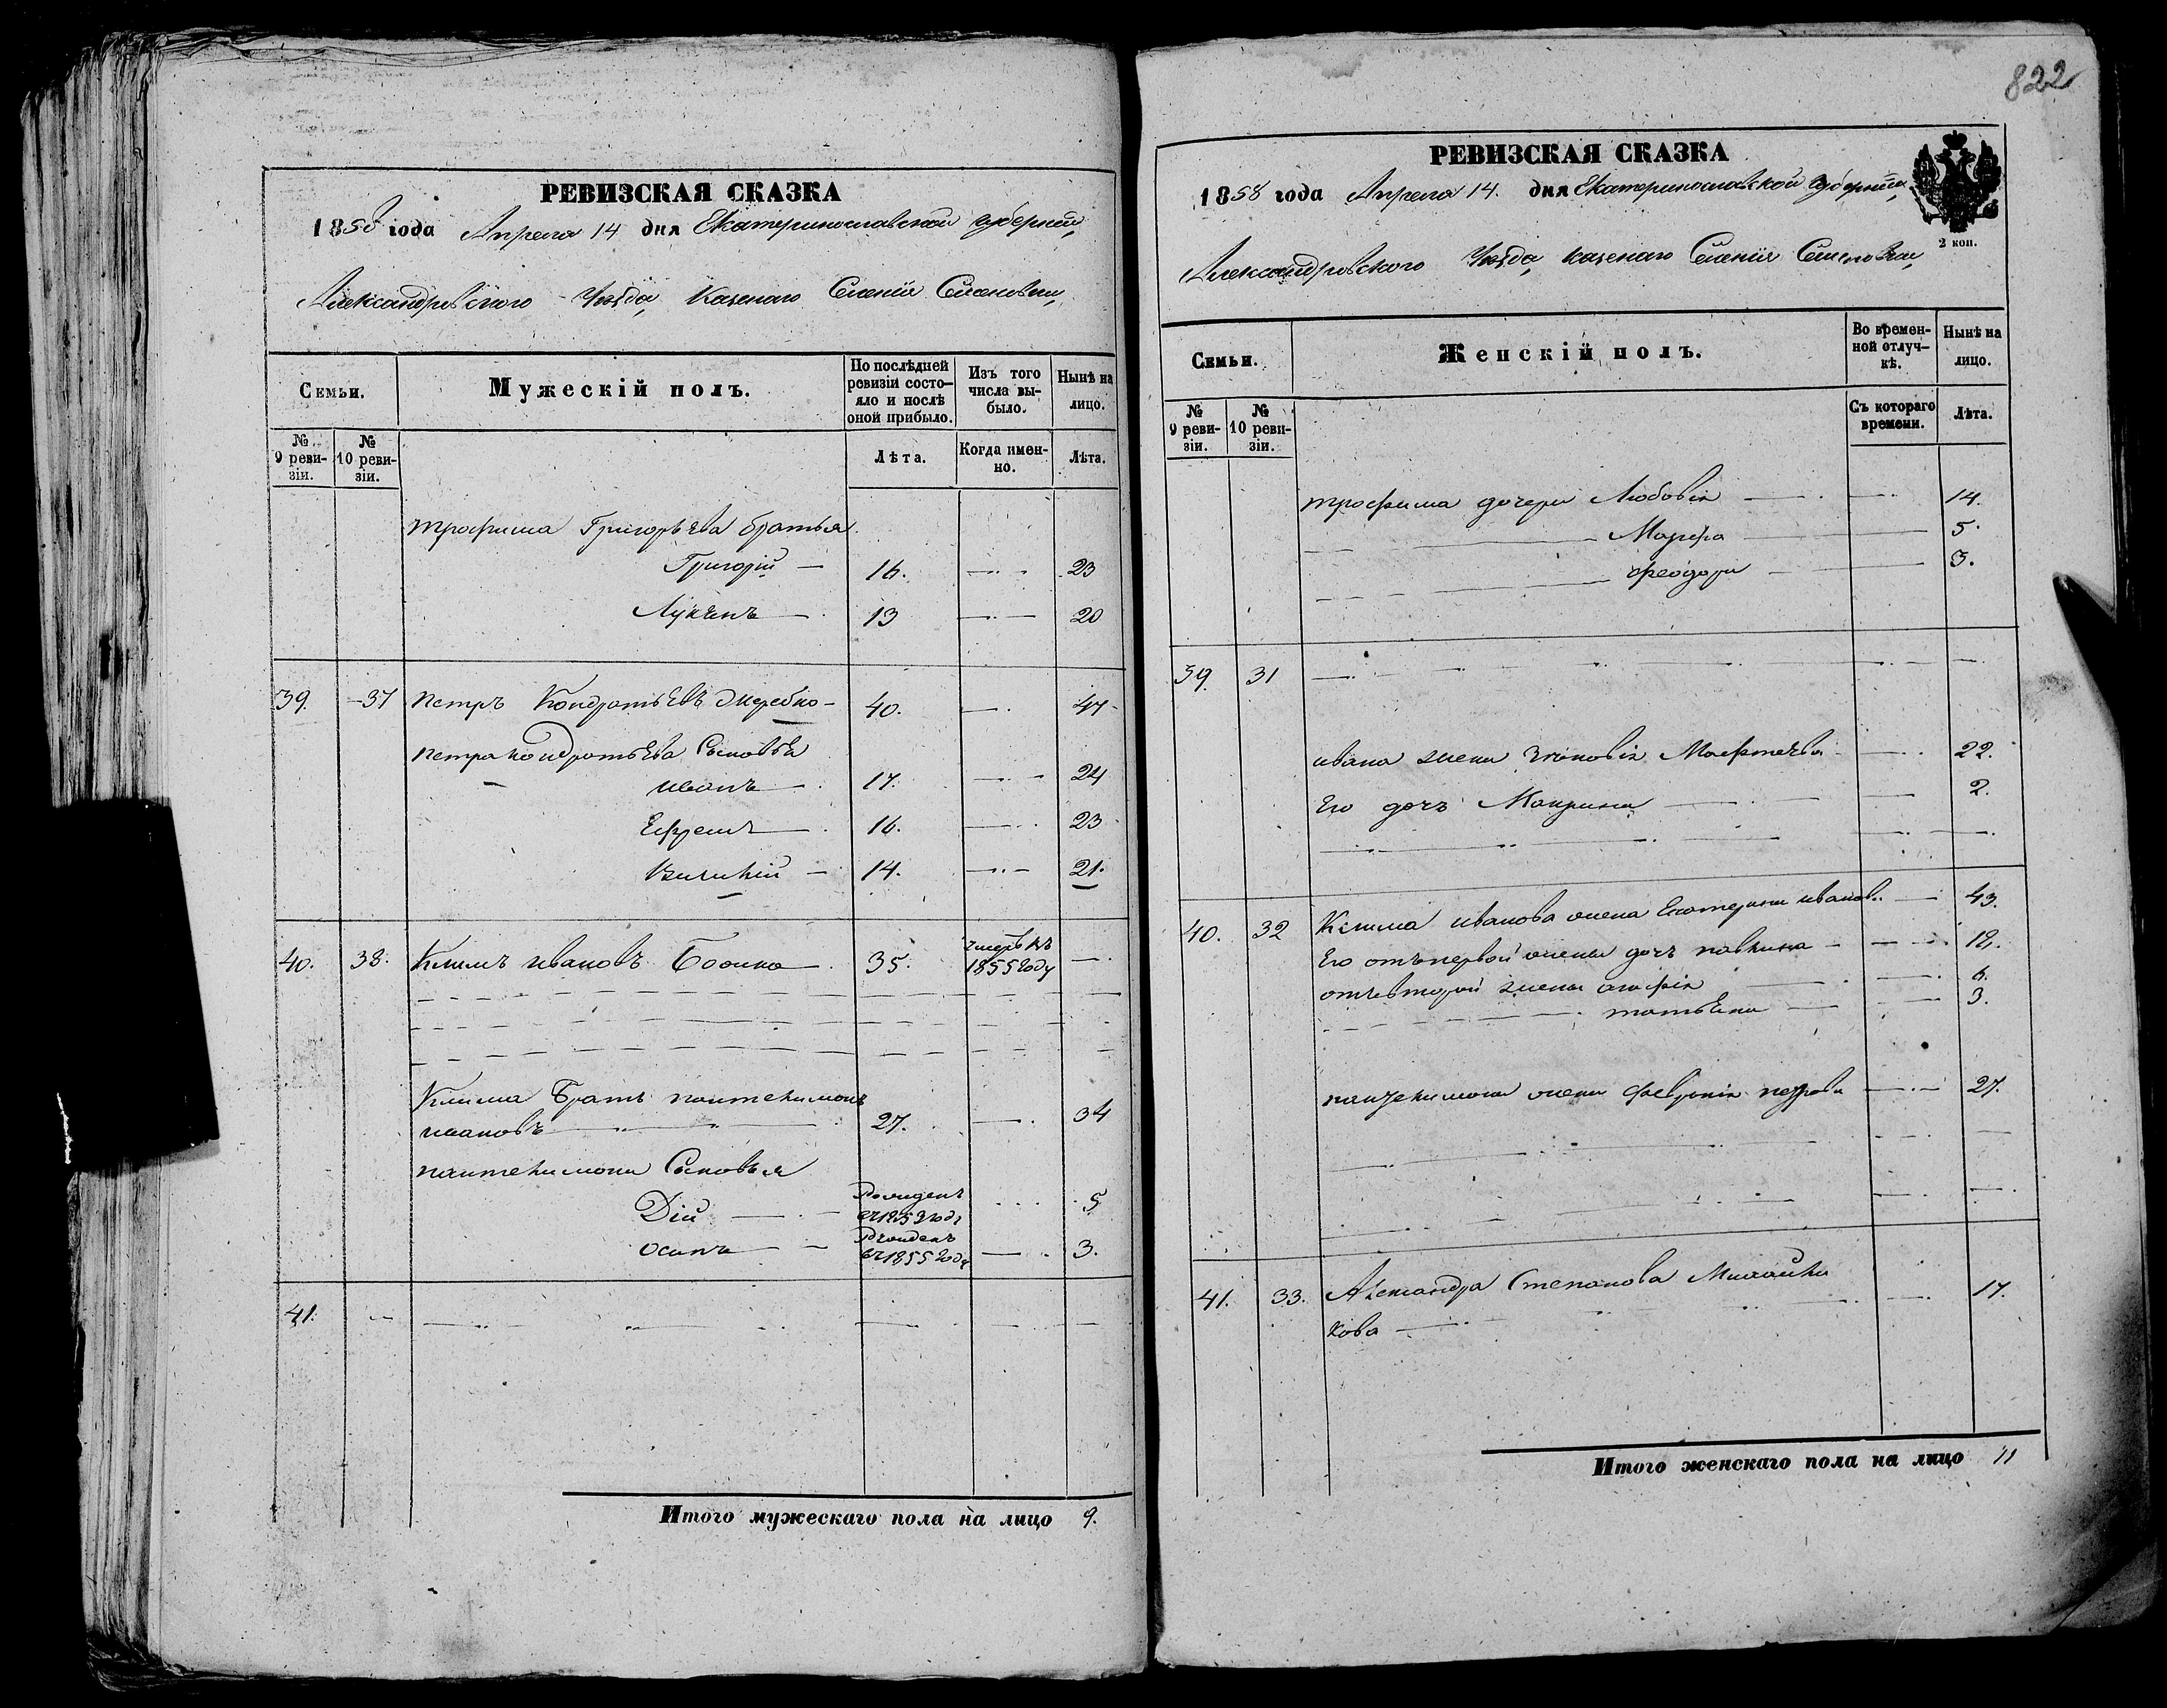 822
РЕВИЗСКАЯ СКАЗКА
1858 года Апреля 14 дня Екатеринославской губернии,
Александровскаго Уѣзда, казенаго Селенія Семеновки,
Семьи.
Мужескій полъ.
По послѣдней ревизіи состо-
яло и послѣ оной прибыло.
Изъ того числа вы-
было.
Нынѣ на лицо.
№ 9 реви-
зіи.
№ 10 реви-
зіи.
Лѣта.
Когда имен-
но.
Лѣта.
трофима Григорьева братья
Григорій 16. 23
Лукъянъ 13 20
39. 37 петръ Кондратьевъ 40. 47
петра кондратьева Сыновья
иванъ 17. 24
Ефремъ 16. 23
14. 21.
40. 38. Климъ ивановъ 35. умеръ въ 1855 году
Клима братъ пантелимонъ
ивановъ 27. 34
пантелимона Сыновья
Дій Рожденъ въ 1853 году 5
осипъ Рожденъ въ 1855 году 3.
41.
Итого мужескаго пола на лицо 9.
РЕВИЗСКАЯ СКАЗКА
1858 года Апреля 14. дня Екатеринославской губерніи,
2 коп.
Александровского Уѣзда, казенаго Селенія Семеновки,
Семьи.
Женскій полъ.
Во времен-
ной отлуч-
кѣ.
Нынѣ на лицо.
№ 9 реви-
зіи.
№ 10 реви-
зіи.
Съ котораго времени.
Лѣта.
трофима дочери Любовія 14.
Марфа 5.
феодора 3.
39. 31
ивана жена зѣновія 22.
Его дочъ Макрина 2.
40. 32 Клима иванова жена Екатерина иванов. 43.
Его отъ первой жены дочъ павлина 12.
отъ второй жены агафія 6.
татьяна 3.
пантелимона жена февронія петрова 27.
41. 33. Александра Степанова
кова 17.
Итого женскаго пола на лицо 11